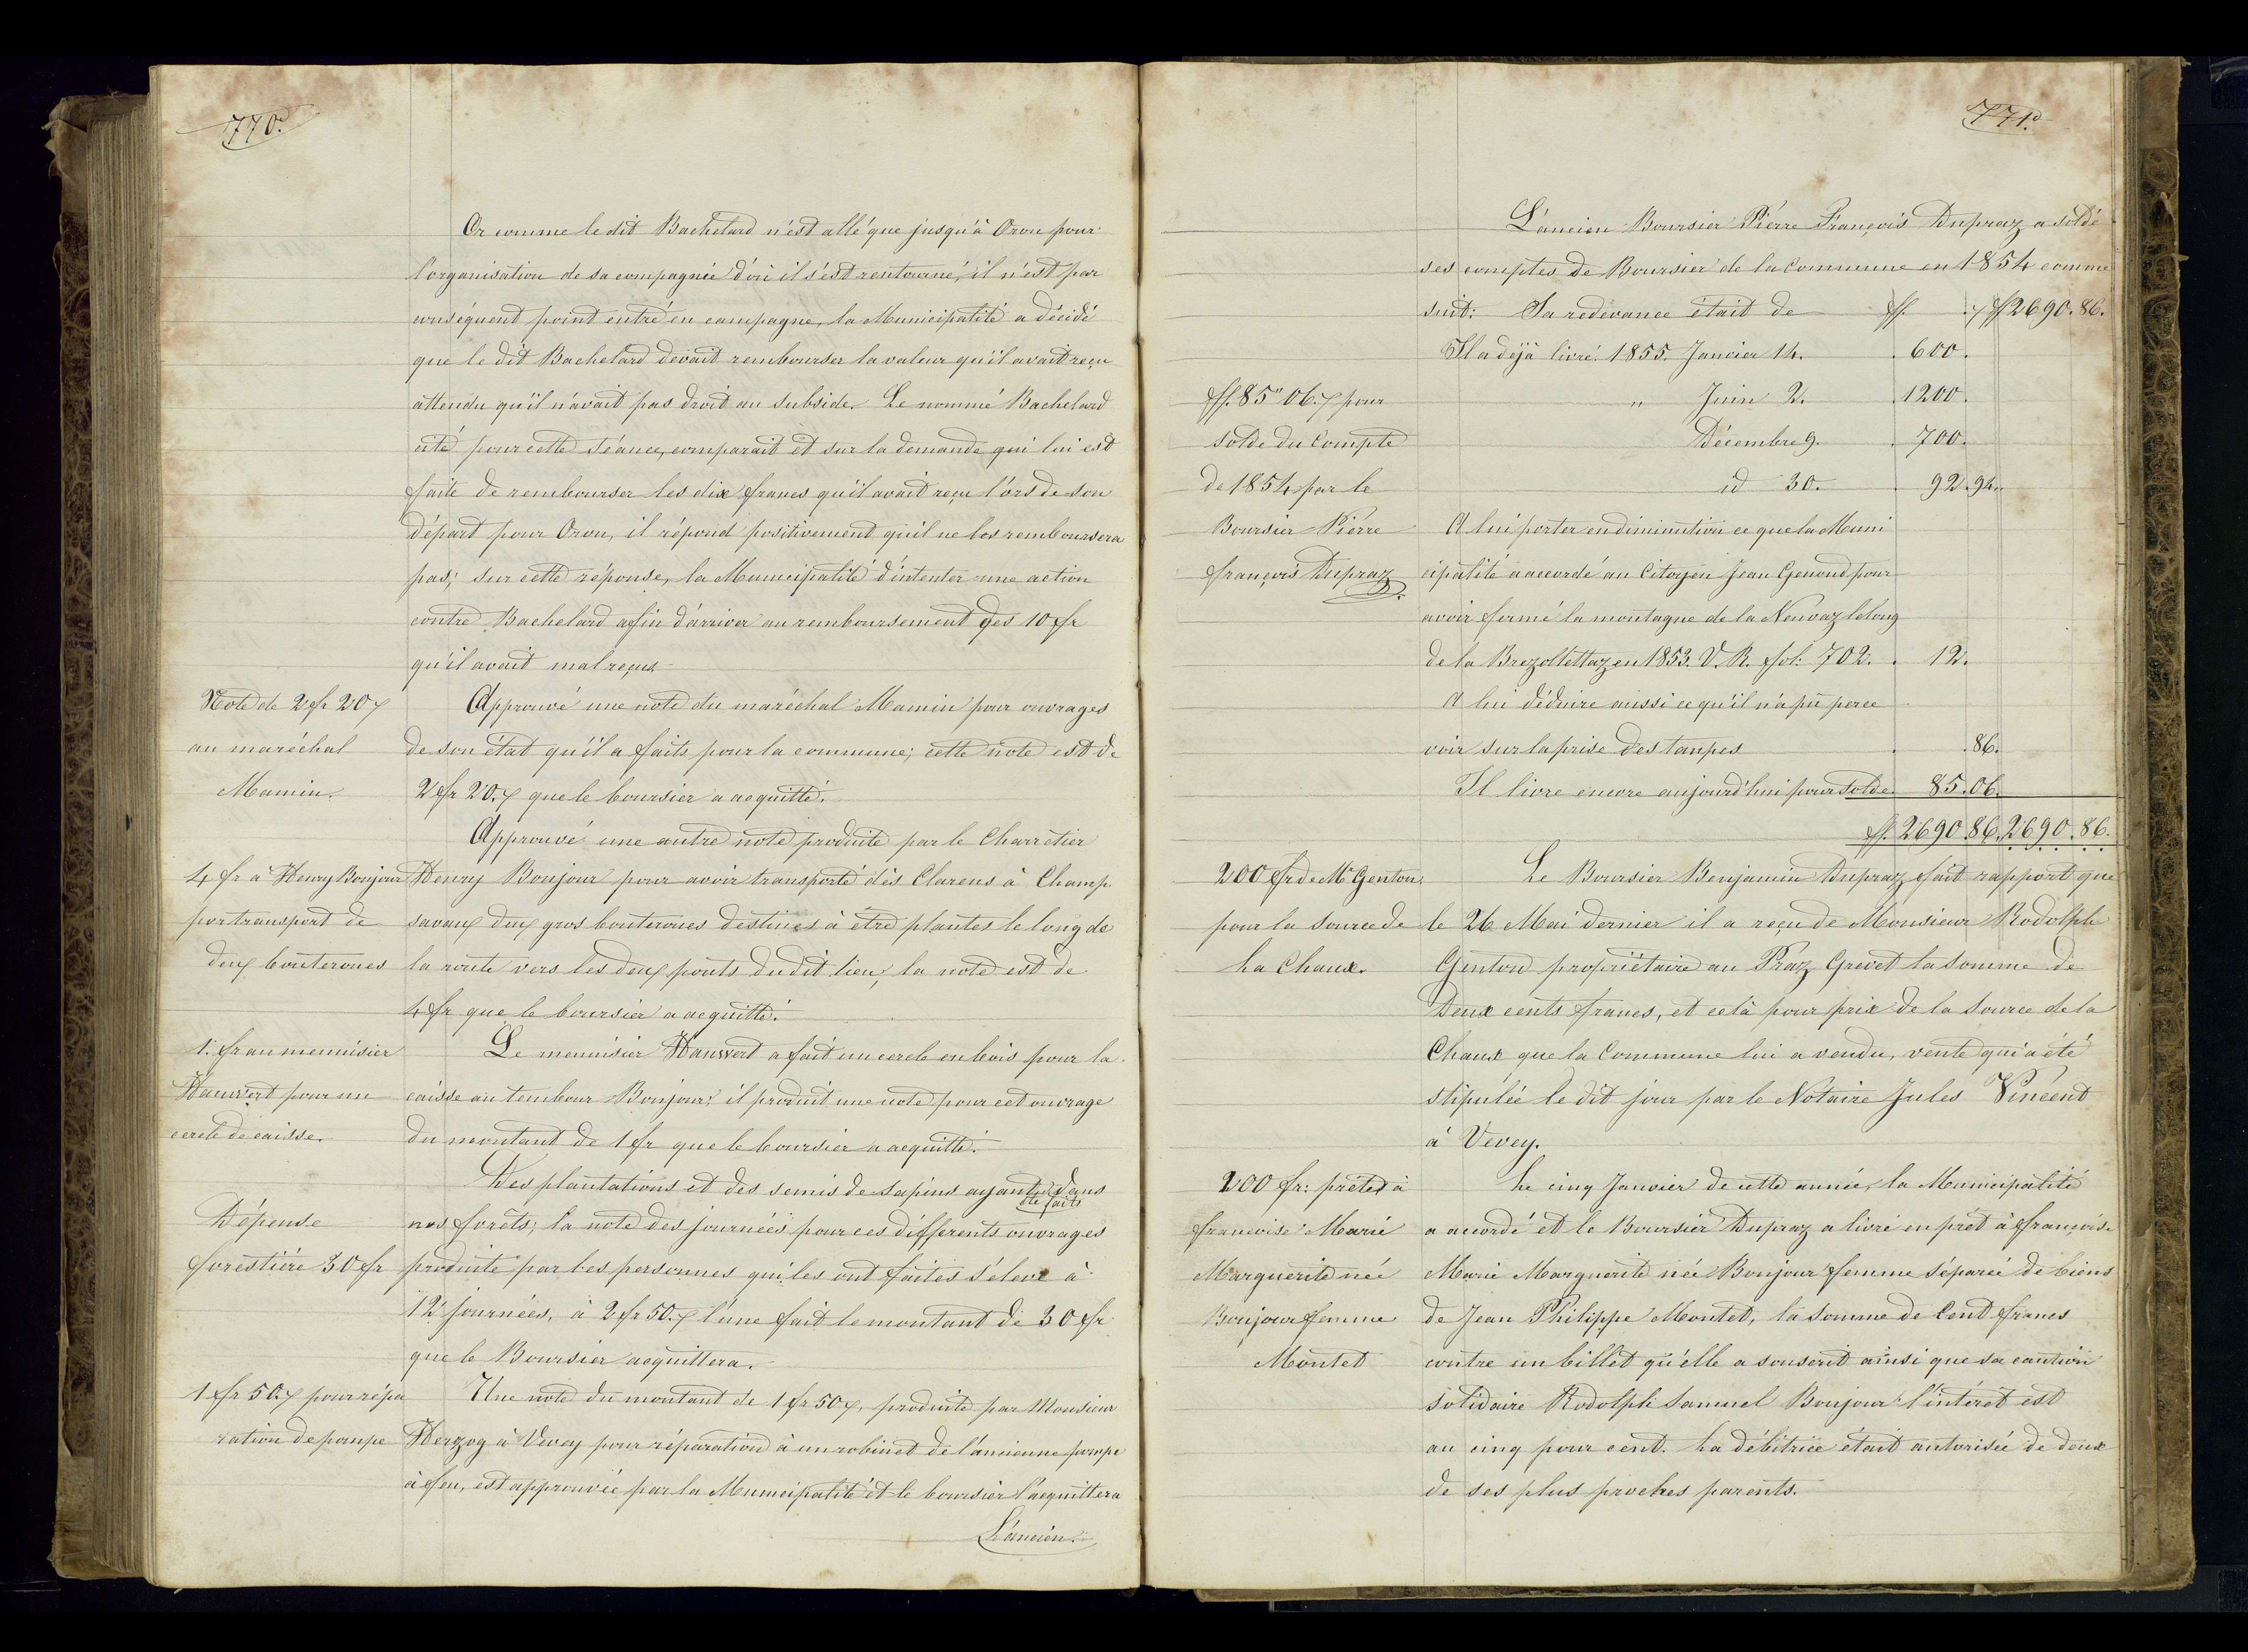 770.
Or comme le dit Bachelard n'est allé que jusqu'à Oron pour
l'organisation de sa compagnie d'où il s'est rentourné, il n'est par
conséquent point entré en campagne, la Municipalité a décidé
que le dit Bachelard devait rembourser la valeur qu'il avait reçu
attendu qu'il n'avait pas droit au subside. Le nommé Bachelard
cité pour cette séance, comparait et sur la demande qui lui est
faite de rembourser les dix francs qu'il avait reçu l'ors de son
départ pour Oron, il répond positivement qu'il ne les remboursera
pas; sur cette réponse, la Municipalité d'intenter une action
contre Bachelard afin d'arriver au remboursement des 10 fr
qu'il avait mal reçus.
Note de 2 fr 20
au maréchal
Mamin.
Approuvé une note du maréchal Mamin pour ouvrages
de son état qu'il a faits pour la commune; cette note est de
2 fr 20. que le boursier a acquitté.
Approuvé une autre note produite par le Charretier
4 fr à Henry Bonjour
por transport de
deux bouteroues
Henry Bonjour pour avoir transporté dès Clarens à Champ.
savaux deux gros bouteroues destinés à être plantés le long de
la route vers les deux ponts du dit lieu, la note est de
4 fr que le boursier a acquitté.
1. fr au menuisier
Hauswert pour un
cercle de caisse.
Le menuisier Hauswert a fait un cercle en bois pour la
caisse au tembour Bonjour; il produit une note pour cet ouvrage
du montant de 1 fr que le boursier a acquitté.
Des plantations et des semis de sapins ayant été faits dans
Dépense
forestière 30 fr
nos forêts; la note des journées pour ces différents ouvrages
produite par les personnes qui les ont faites s'élève à
12 journées, à 2 fr 50. l'une fait le montant de 30 fr
que le Boursier acquittera.
1 fr 50. pour répa
ration de pompe
Une note du montant de 1 fr 50, produite par Monsieur
Herzog à Vevey pour réparation à un robinet de l'ancienne pompe
à feu, est approuvée par la Municipalité et le boursier l'acquittera
L'ancien.
771.
L'ancien Boursier Pierre François Dupraz a soldé
ses comptes de Boursier de la Commune en 1854 comme
suit: Sa redevance était de ff. ff 2690.86.
Il a déjà livré. 1855. Janvier 14. 600.
" Juin 2. 1200.
Décembre 9. 700.
id 30. 92.94.
ff. 85" 06. pour
solde du Compte
de 1854 par le
Boursier Pierre
françois Dupraz
A lui porter en diminution ce que la Muni
cipalité a accordé au Citoyen Jean Genond pour
avoir fermé la montagne de la Neuvaz le long
de la Brezollettaz en 1853. V. R. fol: 702. 12.
A lui déduire aussi ce qu'il n'a pû perce
voir sur la prise des taupes .86.
Il livre encore aujourd'hui pour solde 85.06.
ff. 2690.86. 2690.86.
200 fr de Mr Genton
pour la source de
La Chaux.
Le Boursier Benjamin Dupraz fait rapport que
le 26 Mai dernier il a reçu de Monsieur Rodolph
Genton propriétaire au Praz Grevet la somme de
Deux cents francs, et celà pour prix de la Source de la
Chaux que la Commune lui a vendu, vente qui a été
stipulée le dit jour par le Notaire Jules Vincent
à Vevey.
200 fr: prêtés à
francoise Marie
Marguerite née
Bonjour femme
Montet
Le cinq Janvier de cette année, la Municipalité
a accordé et le Boursier Dupraz a livré en prêt à françoise
Marie Marguerite née Bonjour femme séparée de biens
de Jean Philippe Montet, la somme de Cent francs
contre un billet qu'elle a souscrit ainsi que sa caution
solidaire Rodolph Samuel Bonjour: l'intérêt est
au cinq pour cent. La débitrice était autorisée de deux
de ses plus proches parents.